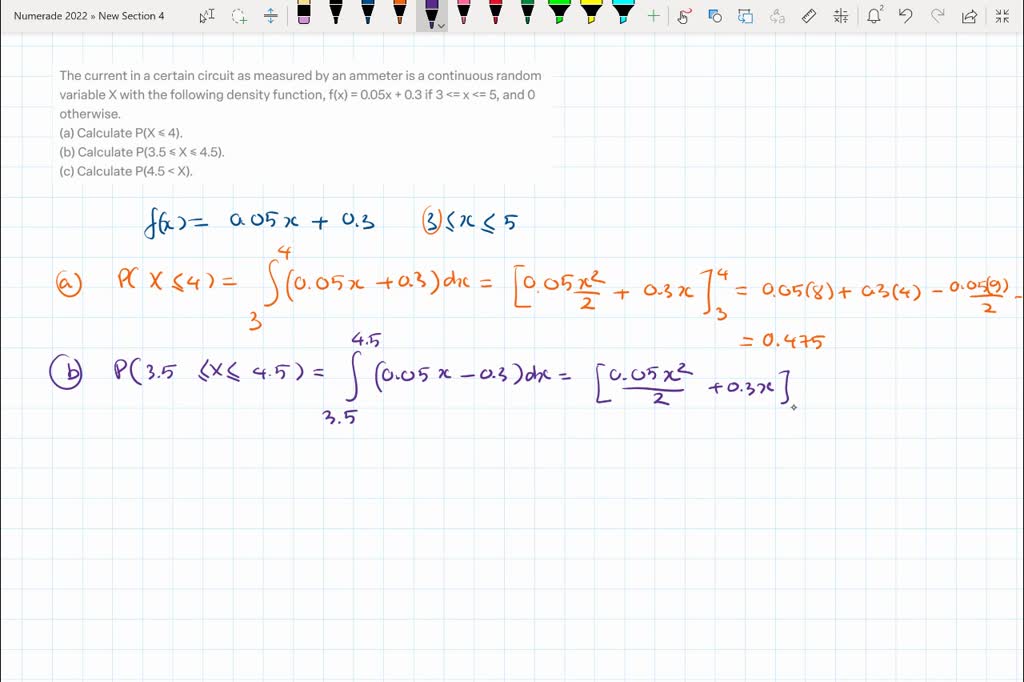 Numerade 2022 » New Section 4
The current in a certain circuit as measured by an ammeter is a continuous random
variable X with the following density function, f(x) = 0.05x + 0.3 if 3 <= x <= 5, and 0
otherwise.
(a) Calculate P(X ≤ 4).
(b) Calculate P(3.5 ≤ X ≤ 4.5).
(c) Calculate P(4.5 < X).
f(x) = 0.05x + 0.3 3 ≤ x ≤ 5
(a) P( X ≤ 4) = ∫₃⁴ (0.05x + 0.3) dx = [0.05x²/2 + 0.3x]₃⁴ = 0.05(8) + 0.3(4) - 0.05(9)/2 -
= 0.475
(b) P(3.5 ≤ X ≤ 4.5) = ∫ 3.5 4.5 (0.05x - 0.3) dx = [0.05x²/2 + 0.3x]